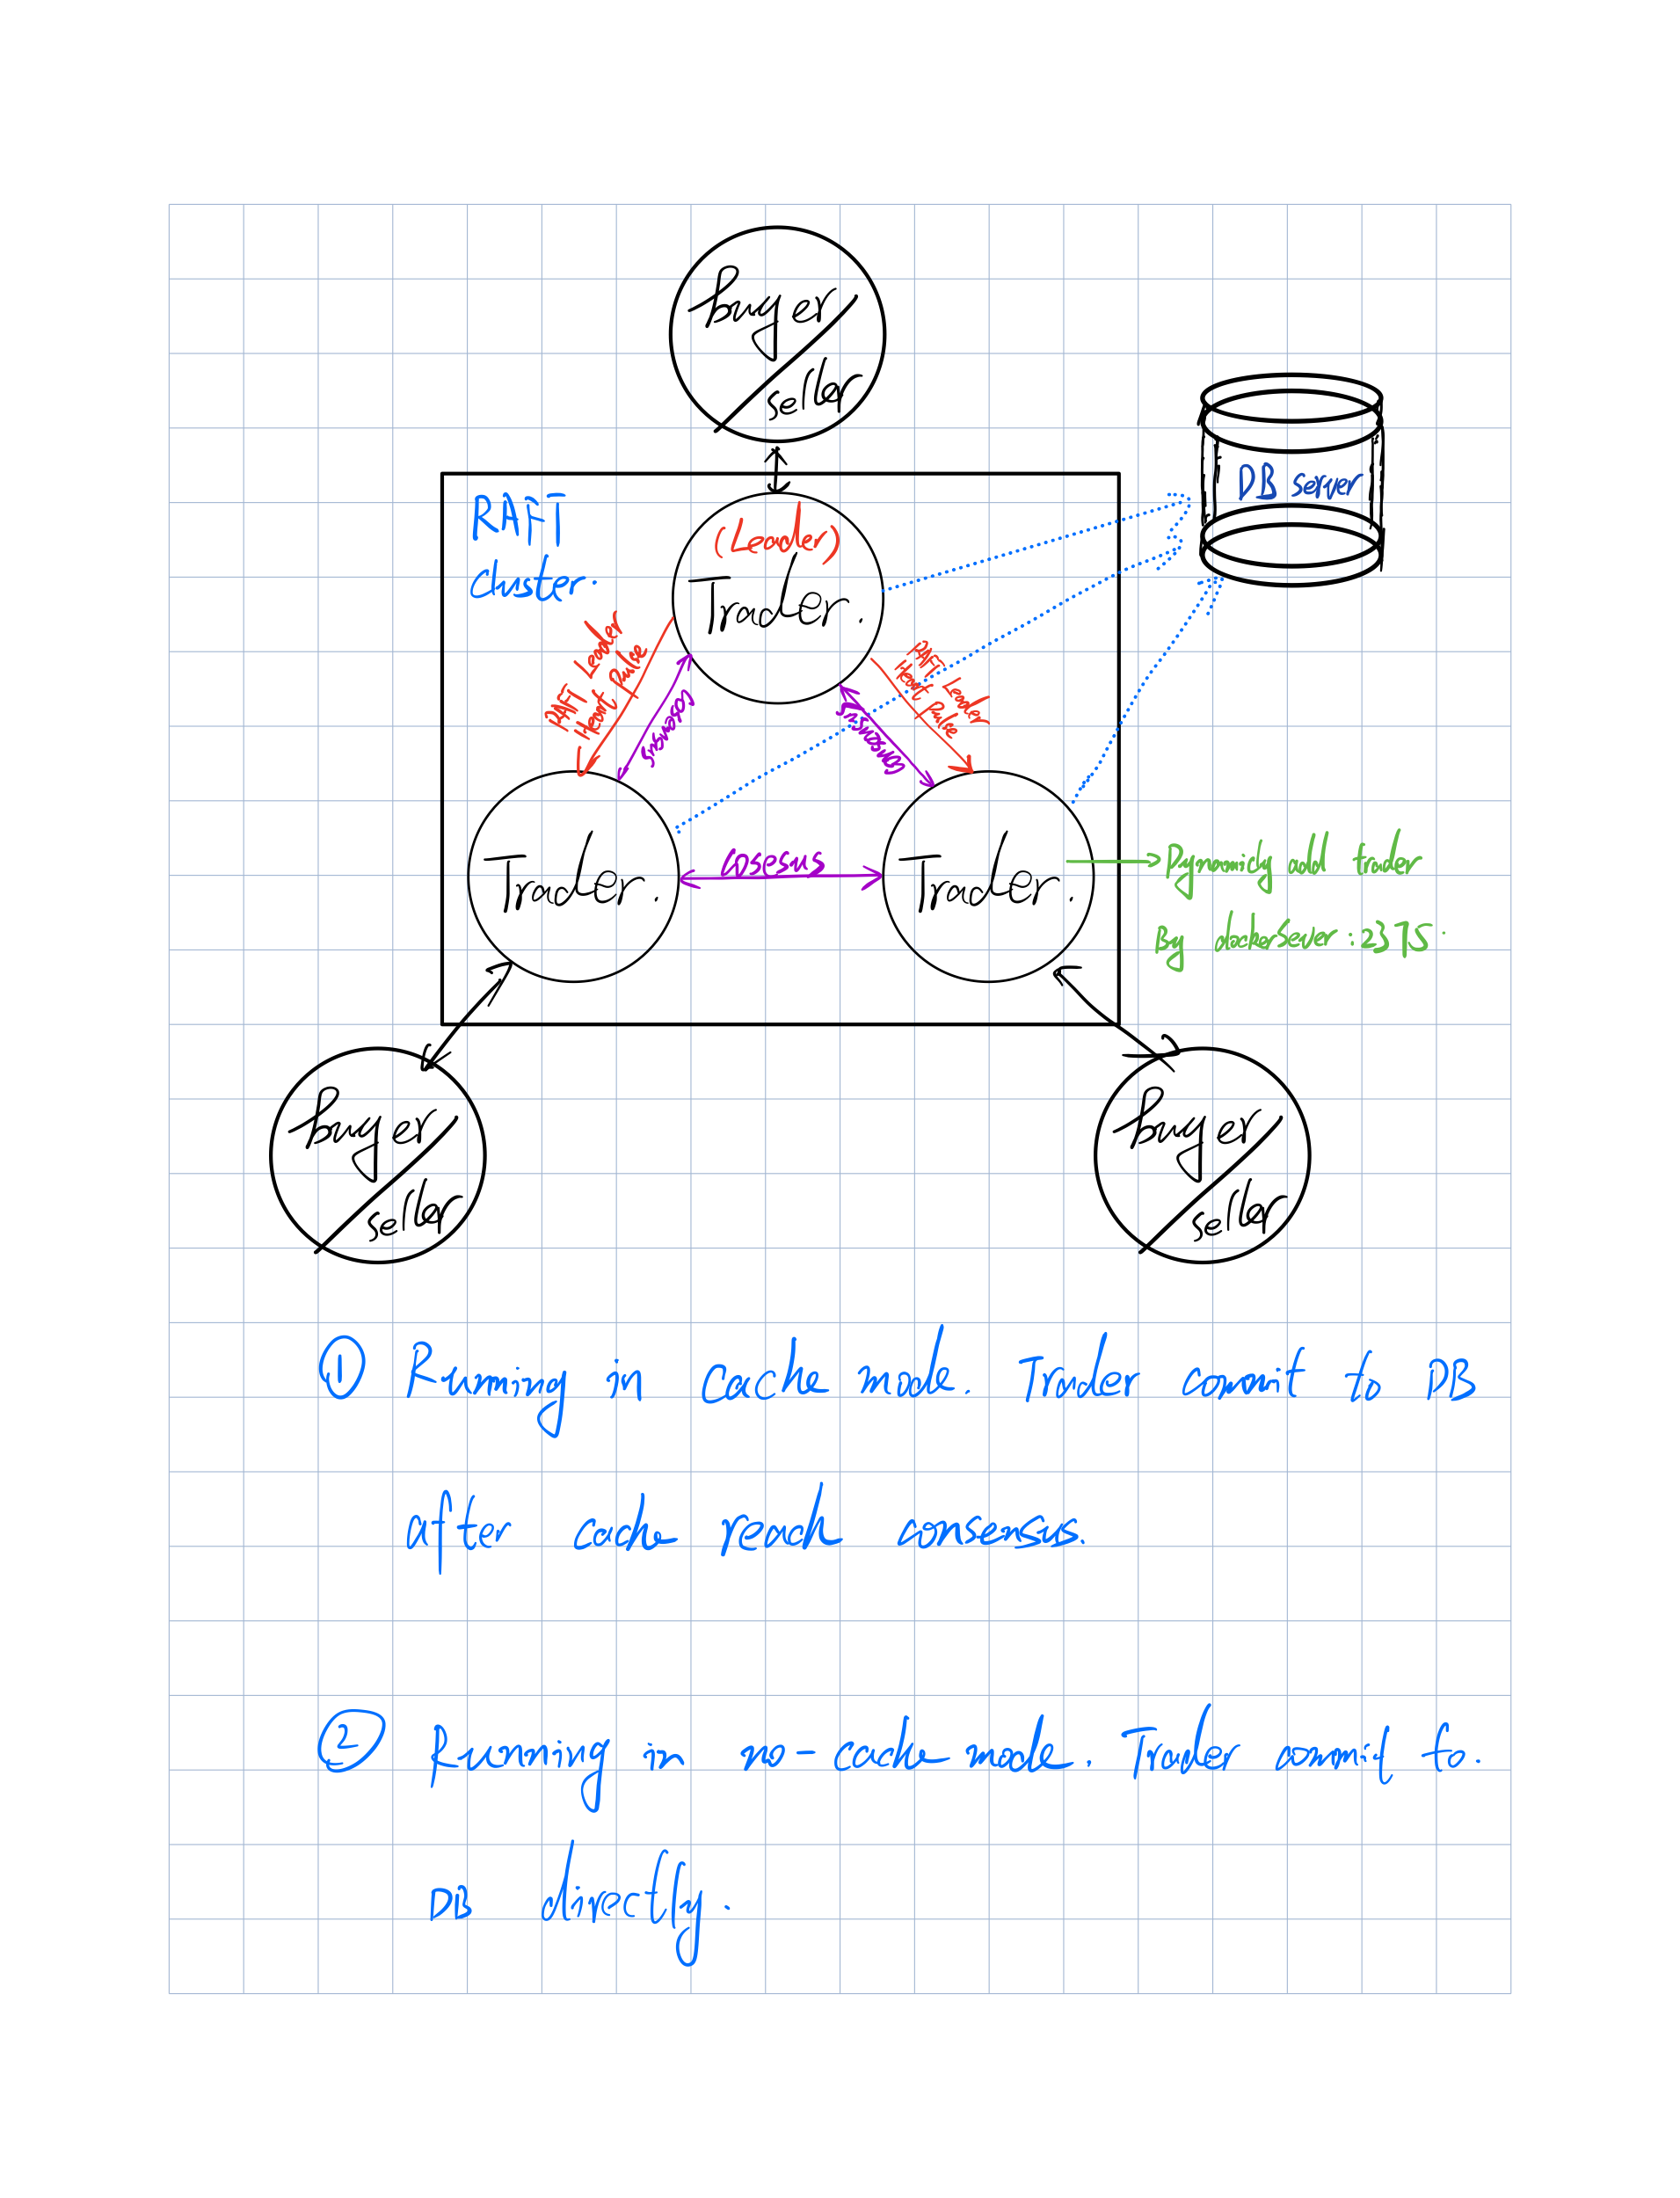 buyer
seller
DB server
RAFT
cluster.
(Leader)
Trader.
RAFT Leader
Heart Pulse
RAFT Leader
Heart Pulse
consensus
Trader.
cosesus
Trader.
Dynamicly add trader
By dockerSever:2375.
buyer
seller
buyer
seller
① Running in cache mode. Trader commit to DB
after cache reach consensus.
② Running in no-cache mode. Trader commit to.
DB directly.